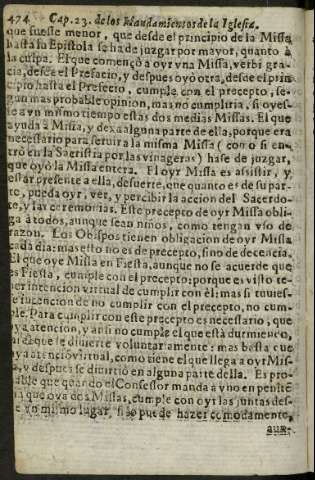 474 Cap. 23. de los Mandamientos de la Iglesia.
que fuesse menor, que desde el principio de la Missa
hasta su Epistola se ha de juzgar por mayor, quanto à
la culpa. El que començò a oyr vna Missa, verbi gra-
cia, desde el Prefacio, y despues oyò otra, desde el prin
cipio hasta el Prefacio, cumple con el precepto, se-
gun mas probable opinion, mas no cumpliria, si oyes-
e a vn mismo tiempo estas dos medias Missas. El que
ayuda à Missa, y dexa alguna parte de ella, porque era
necessario para servir a la misma Missa (como si en-
trò en la Sacristia por las vinageras) hase de juzgar,
que oyò la Missa entera. El oyr Missa es assistir, y
estar presente a ella, de suerte, que quanto es de su par-
te, pueda oyr, ver, y percibir la accion del Sacerdo-
te, y las ceremonias. Este precepto de oyr Missa obli-
ga à todos, aunque sean niños, como tengan vso de
razon. Los Obispos tienen obligacion de oyr Missa
cada dia: mas esto no es de precepto, sino de decencia.
El que oye Missa en Fiesta, aunque no se acuerde que
es Fiesta, cumple con el precepto: porque es visto te-
ner intencion virtual de cumplir con èl: mas si tuuies-
e intencion de no cumplir con el precepto, no cum-
ple. Para cumplir con este precepto es necessario, que
ay atencion, y ansi no cumple el que està durmiendo,
ni el que se diuierte voluntariamente: mas basta que
aya atencion virtual, como tiene el que llega a oyr Mis-
sa, y despues se diuirtiò en alguna parte della. Es pro-
bable que quando el Confessor manda à vno en penitē
cia que oya dos Missas, cumple con oyr las juntas des-
de vn mismo lugar, si lo puede hazer comodamente,
aun-